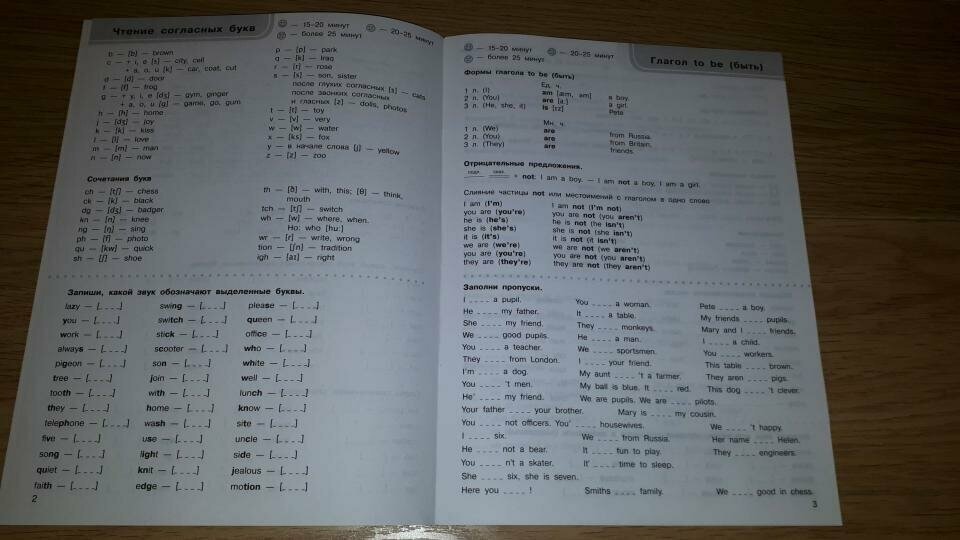 Чтение согласных букв
— 15–20 минут
— 20–25 минут
— более 25 минут
b — [b] — brown
c — + i, e [s] — city, cell
+ a, o, u [k] — car, coat, cut
d — [d] — door
f — [f] — frog
g — + y, i, e [dʒ] — gym, ginger
+ a, o, u [g] — game, go, gum
h — [h] — home
j — [dʒ] — joy
k — [k] — kiss
l — [l] — love
m — [m] — man
n — [n] — now
p — [p] — park
q — [k] — Iraq
r — [r] — rose
s — [s] — son, sister
после глухих согласных [s] — cats
после звонких согласных
и гласных [z] — dolls, photos
t — [t] — toy
v — [v] — very
w — [w] — water
x — [ks] — fox
y — в начале слова [j] — yellow
z — [z] — zoo
Сочетания букв
ch — [tʃ] — chess
ck — [k] — black
dg — [dʒ] — badger
kn — [n] — knee
ng — [ŋ] — sing
ph — [f] — photo
qu — [kw] — quick
sh — [ʃ] — shoe
th — [ð] — with, this; [θ] — think,
mouth
tch — [tʃ] — switch
wh — [w] — where, when.
Но: who [hu:]
wr — [r] — write, wrong
tion — [ʃn] — tradition
igh — [aɪ] — right
Запиши, какой звук обозначают выделенные буквы.
lazy — [_ _ _] swing — [_ _ _] please — [_ _ _]
you — [_ _ _] switch — [_ _ _] queen — [_ _ _]
work — [_ _ _] stick — [_ _ _] office — [_ _ _]
always — [_ _ _] scooter — [_ _ _] who — [_ _ _]
pigeon — [_ _ _] son — [_ _ _] white — [_ _ _]
tree — [_ _ _] join — [_ _ _] well — [_ _ _]
tooth — [_ _ _] with — [_ _ _] lunch — [_ _ _]
they — [_ _ _] home — [_ _ _] know — [_ _ _]
telephone — [_ _ _] wash — [_ _ _] site — [_ _ _]
five — [_ _ _] use — [_ _ _] uncle — [_ _ _]
song — [_ _ _] light — [_ _ _] side — [_ _ _]
quiet — [_ _ _] knit — [_ _ _] jealous — [_ _ _]
faith — [_ _ _] edge — [_ _ _] motion — [_ _ _]
2
— 15–20 минут
— 20–25 минут
— более 25 минут
Глагол to be (быть)
Формы глагола to be (быть)
Ед. ч.
1 л. (I) am [æm, əm] a boy.
2 л. (You) are [a:] a girl.
3 л. (He, she, it) is [ɪz] Pete
Мн. ч.
1 л. (We) are from Russia.
2 л. (You) are from Britain.
3 л. (They) are friends.
Отрицательные предложения.
подл. сказ. + not: I am a boy. — I am not a boy, I am a girl.
Слияние частицы not или местоимений с глаголом в одно слово
I am (I'm) I am not (I'm not)
you are (you're) you are not (you aren't)
he is (he's) he is not (he isn't)
she is (she's) she is not (she isn't)
it is (it's) it is not (it isn't)
we are (we're) we are not (we aren't)
you are (you're) you are not (you aren't)
they are (they're) they are not (they aren't)
Заполни пропуски.
I _ _ _ _ a pupil. You _ _ _ _ a woman. Pete _ _ _ _ a boy.
He _ _ _ _ my father. It _ _ _ _ a table. My friends _ _ _ _ pupils.
She _ _ _ _ my friend. They _ _ _ _ monkeys. Mary and I _ _ _ _ friends.
We _ _ _ _ good pupils. He _ _ _ _ a man. I _ _ _ _ a child.
You _ _ _ _ a teacher. We _ _ _ _ sportsmen. You _ _ _ _ workers.
They _ _ _ _ from London. I _ _ _ _ your friend. This table _ _ _ _ brown.
I'm _ _ _ _ a dog. My aunt _ _ _ _ 't a farmer. They aren _ _ _ _ pigs.
You _ _ _ _ 't men. My ball is blue. It _ _ _ _ red. This dog _ _ _ _ 't clever.
He' _ _ _ _ my friend. We are pupils. We are _ _ _ _ pilots.
Your father _ _ _ _ your brother. Mary is _ _ _ _ my cousin.
You _ _ _ _ not officers. You' _ _ _ _ housewives. We _ _ _ _ 't happy.
I _ _ _ _ six. We _ _ _ _ from Russia. Her name _ _ _ _ Helen.
He _ _ _ _ not a bear. It _ _ _ _ fun to play. They _ _ _ _ engineers.
You _ _ _ _ n't a skater. It' _ _ _ _ time to sleep.
She _ _ _ _ six, she is seven.
Here you _ _ _ _ ! Smiths _ _ _ _ family. We _ _ _ _ good in chess.
3